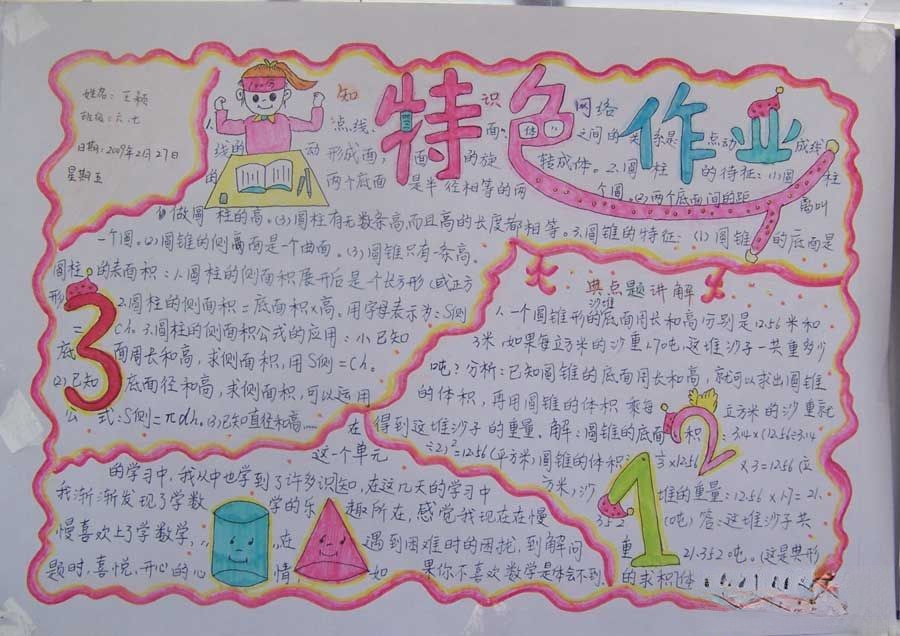 姓名:王颖
班级:六.七
日期:2009年2月27日
星期五
特色作业
知识网络
1. 点线面。"体"之间的关系是:点动成线
线的 动形成面,面的旋转成体。2.圆柱的特征:(1)圆柱
的 两个底面是半径相等的两个圆。(2)两个底面间的距离叫
做圆柱的高。(3)圆柱有无数条高而且高的长度都相等。3.圆锥的特征:(1)圆锥的底面是
一个圆。(2)圆锥的侧面是一个曲面。(3)圆锥只有一条高。
圆柱的表面积:1.圆柱的侧面积展开后是一个长方形(或正方
形 2.圆柱的侧面积=底面积×高.用字母表示为:S侧
=Ch.3.圆柱的侧面积公式的应用:(1)已知
底面周长和高,求侧面积,用S侧=Ch。
(2)已知底面径和高,求侧面积,可以运用
公式:S侧=πdh,(3)已知直径和高……
典点题讲解
沙堆
1.一个圆锥形的底面周长和高分别是12.56米和
3米,如果每立方米的沙重1.70吨,这堆沙子一共重多少
吨?分析:已知圆锥的底面周长和高,就可以求出圆锥
的体积,再用圆锥的体积乘每立方米的沙重就
得到这堆沙子的重量。解:圆锥的底面积:3.14×(12.56÷3.14
÷2)²=12.56(平方米)圆锥的体积 ×12.56×3=12.56(立
方米)沙堆的重量:12.56×1.7=21.
352(吨)答:这堆沙子共
重21.352吨。(这是典形
的求积体
在
这一个单元
的学习中,我从中也学到了许多识知,在这几天的学习中
我渐渐发现了学数学的乐趣所在,感觉我现在在慢
慢喜欢上了学数学,,,在遇到困难时的困扰,到解问
题时,喜悦,开心的心情,如果你不喜欢数学是体会不到.
3
1
2